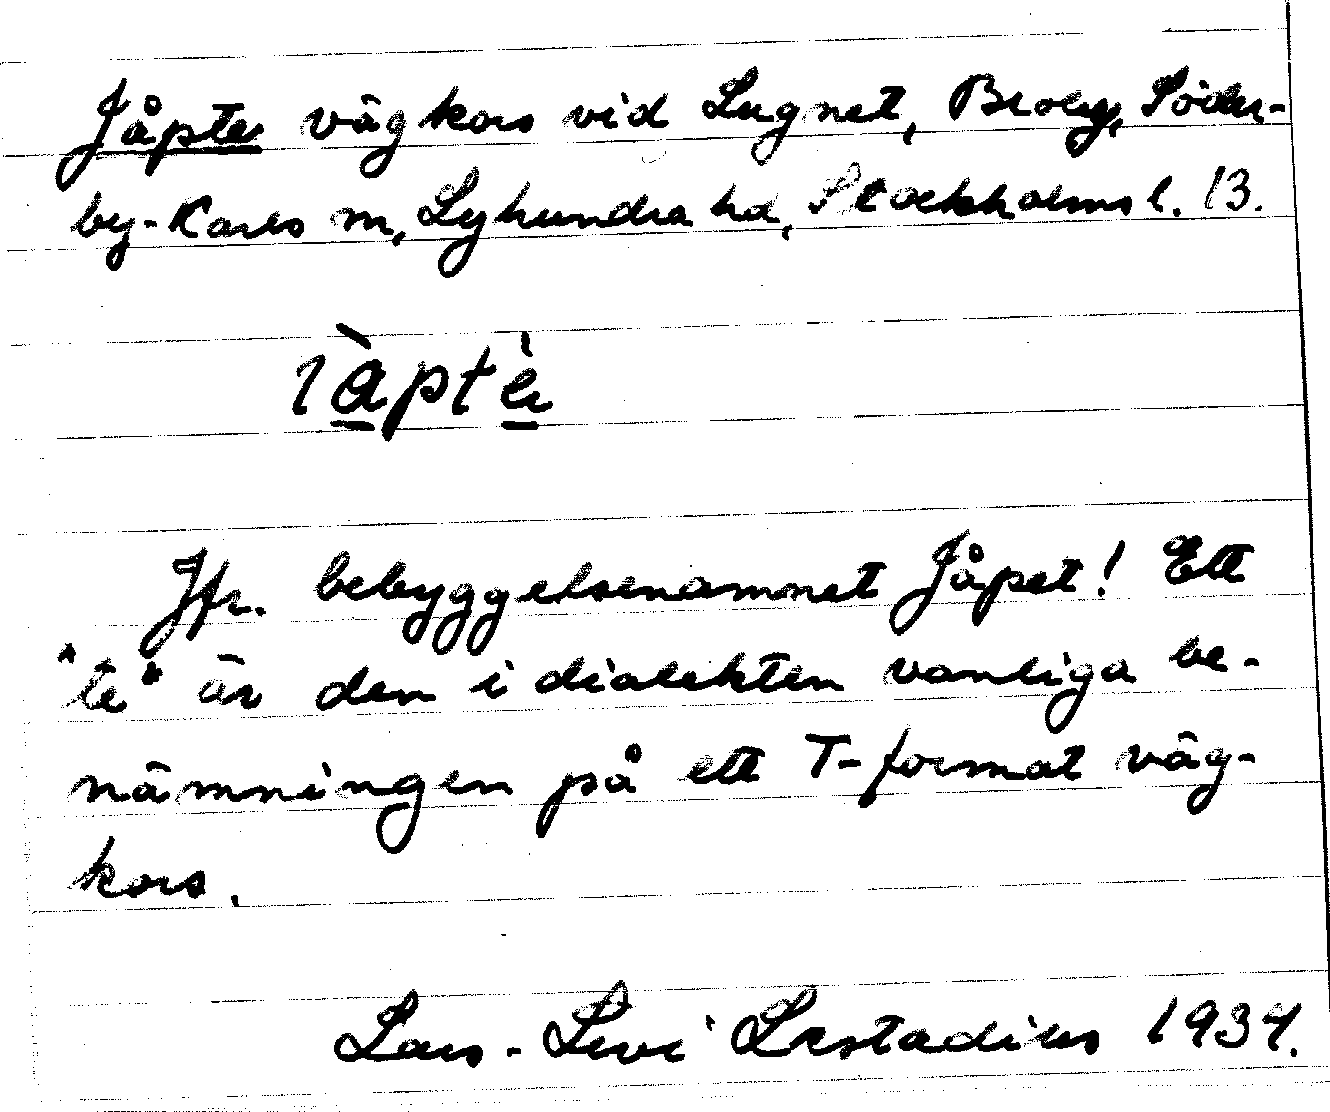 Jåpte vägkors vid Lugnet, Broby, Söder-
by-Karls sn, Lyhundra hd, Stockholms l. 13.
Jfr. bebyggelsenamnet Jåpet! Ett
"te" är den i dialekten vanliga be-
nämningen på ett T-format väg-
kors.
Lars-Levi Læstadius 1934.